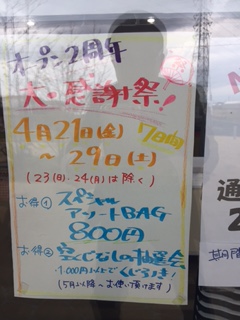 オープン2周年
大・感謝祭!
4月21日(金) 7日間
~29日(土)
(23(日)・24(月)は除く)
お得① スペシャル
アソートBAG
800円
お得② 空くじなしの抽選会
1,000円以上でくじ引き!
(5月以降~お使い頂けます)
通
2
期間